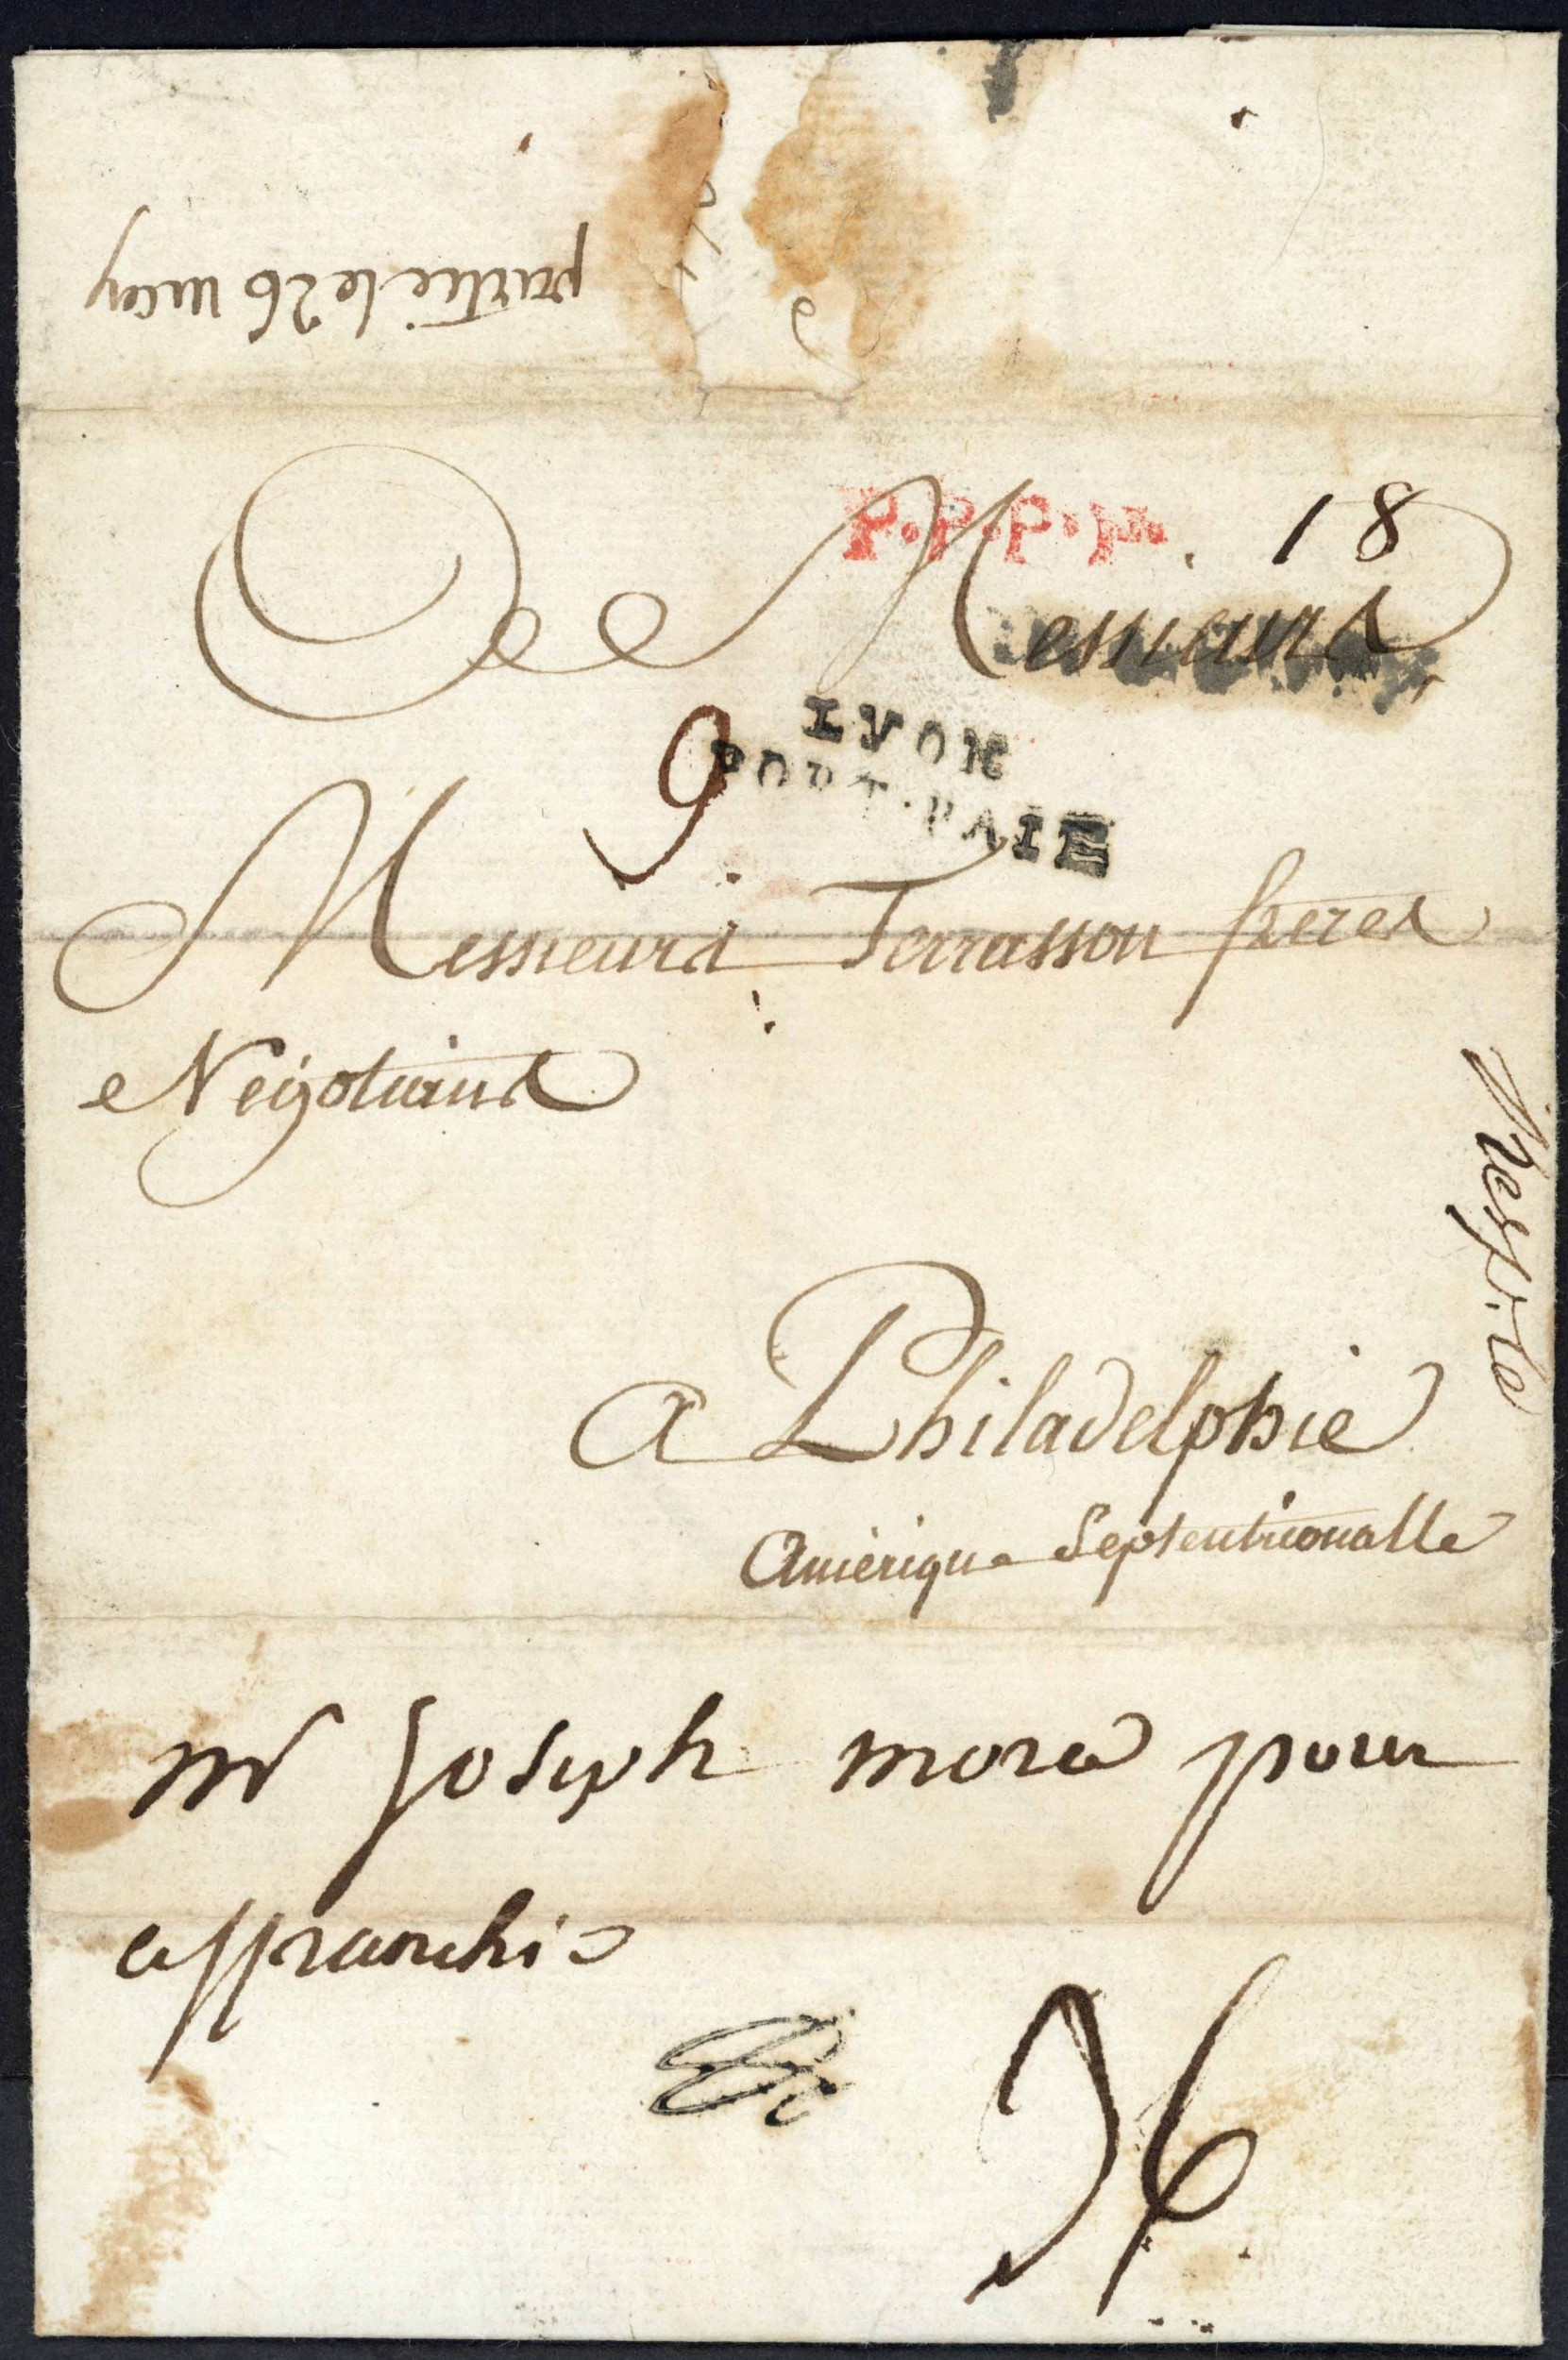 partie le 26 may
P.P.P.P.
18
Messieurs
9
LYON
PORT.PAIE
Messieurs Terrasson freres
Negotians
a Philadelphie
Amérique Septentrionalle
mr Joseph mora pour
affranchir
36